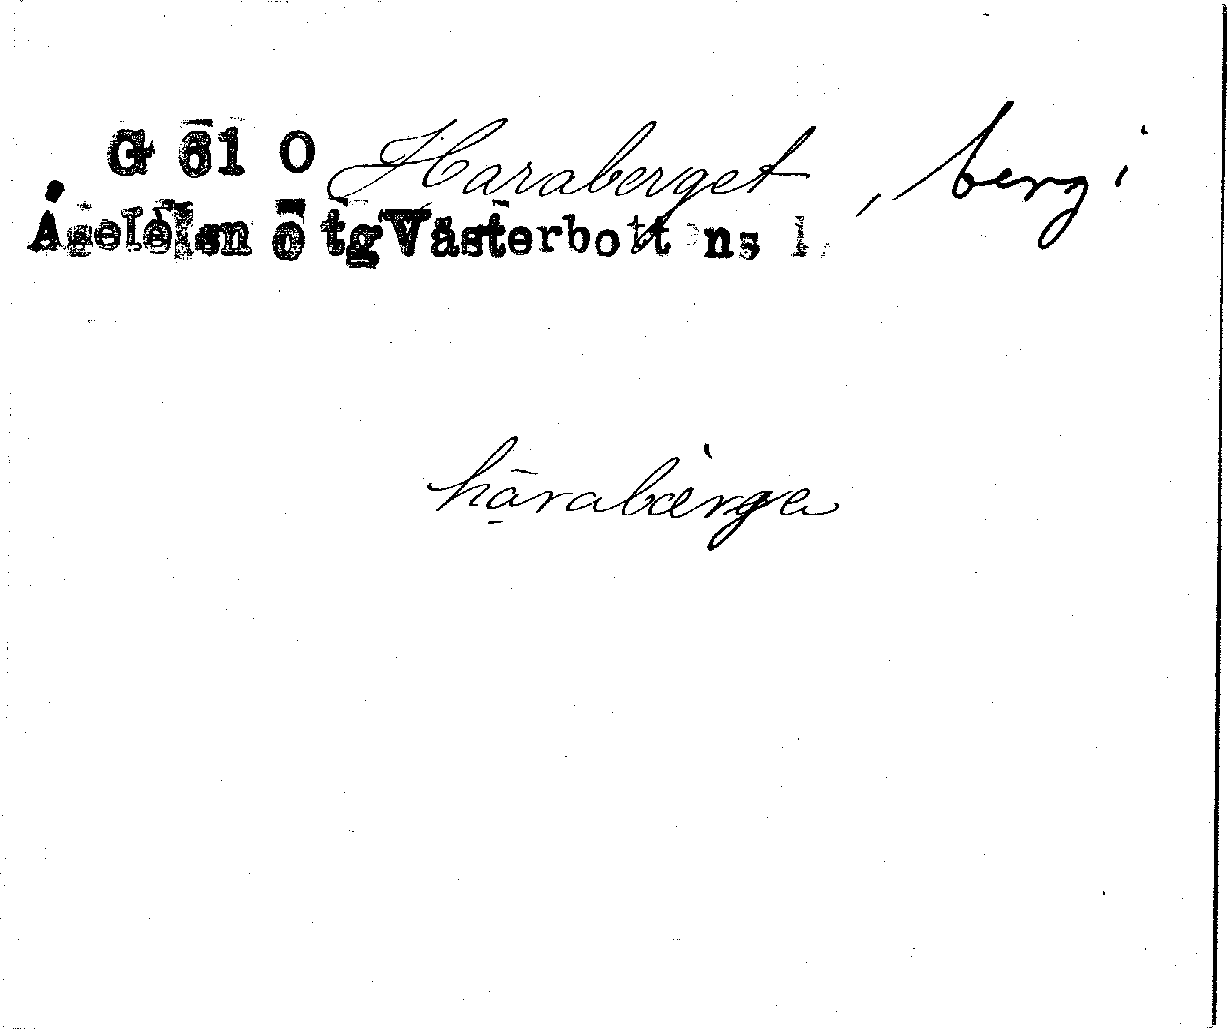 G 61 O Haraberget, berg i
Åsele sn o tg Västerbottens l.
hārabærga